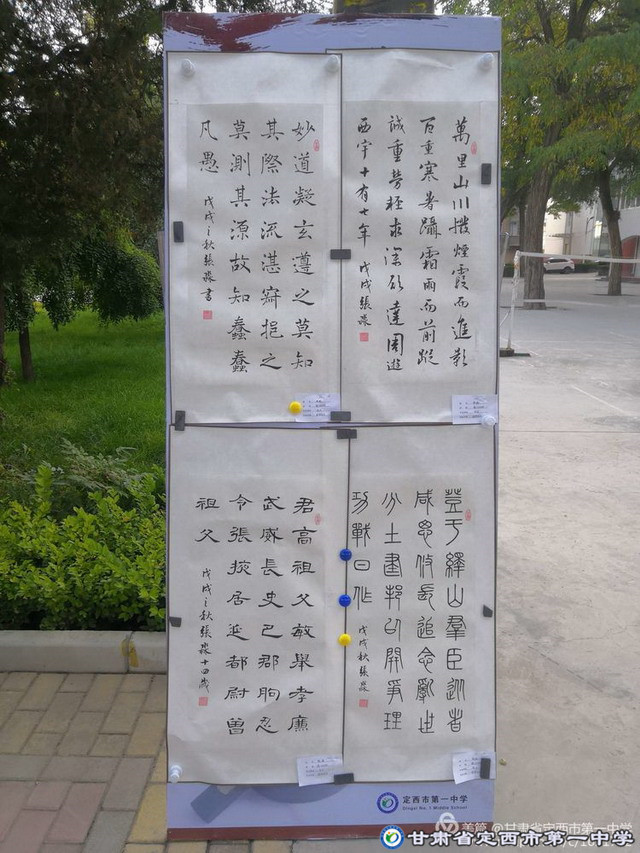 萬里山川撥煙霞而進影
百重寒暑躡霜雨而前蹤
誠重勞輕求深欲達周遊
西宇十有七年 戊戌張淼
妙道凝玄遵之莫知
其際法流湛寂挹之
莫測其源故知蠢蠢
凡愚 戊戌之秋張淼書
登于繹山羣臣從者
咸思攸長追念亂世
分土建邦以開爭理
功戰日作 戊戌秋張淼
君高祖父敏舉孝廉
武威長史巴郡朐忍
令張掖居延都尉曾
祖父 戊戌之秋張淼十四歲
定西市第一中学
Dingxi No. 1 Middle School
美篇 @甘肃省定西市第一中学
甘肃省定西市第一中学